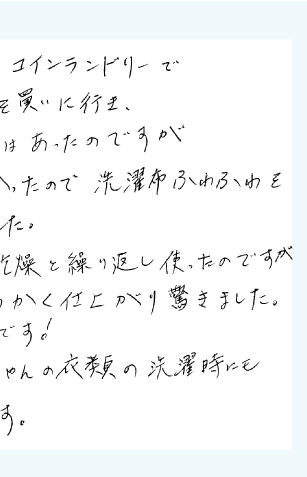 コインランドリーで
を買いに行き、
はあったのですが
ったので 洗濯布ふわふわを
た。
乾燥と繰り返し使ったのですが
かく仕上がり驚きました。
です!
ゃんの衣類の洗濯時にも
す。